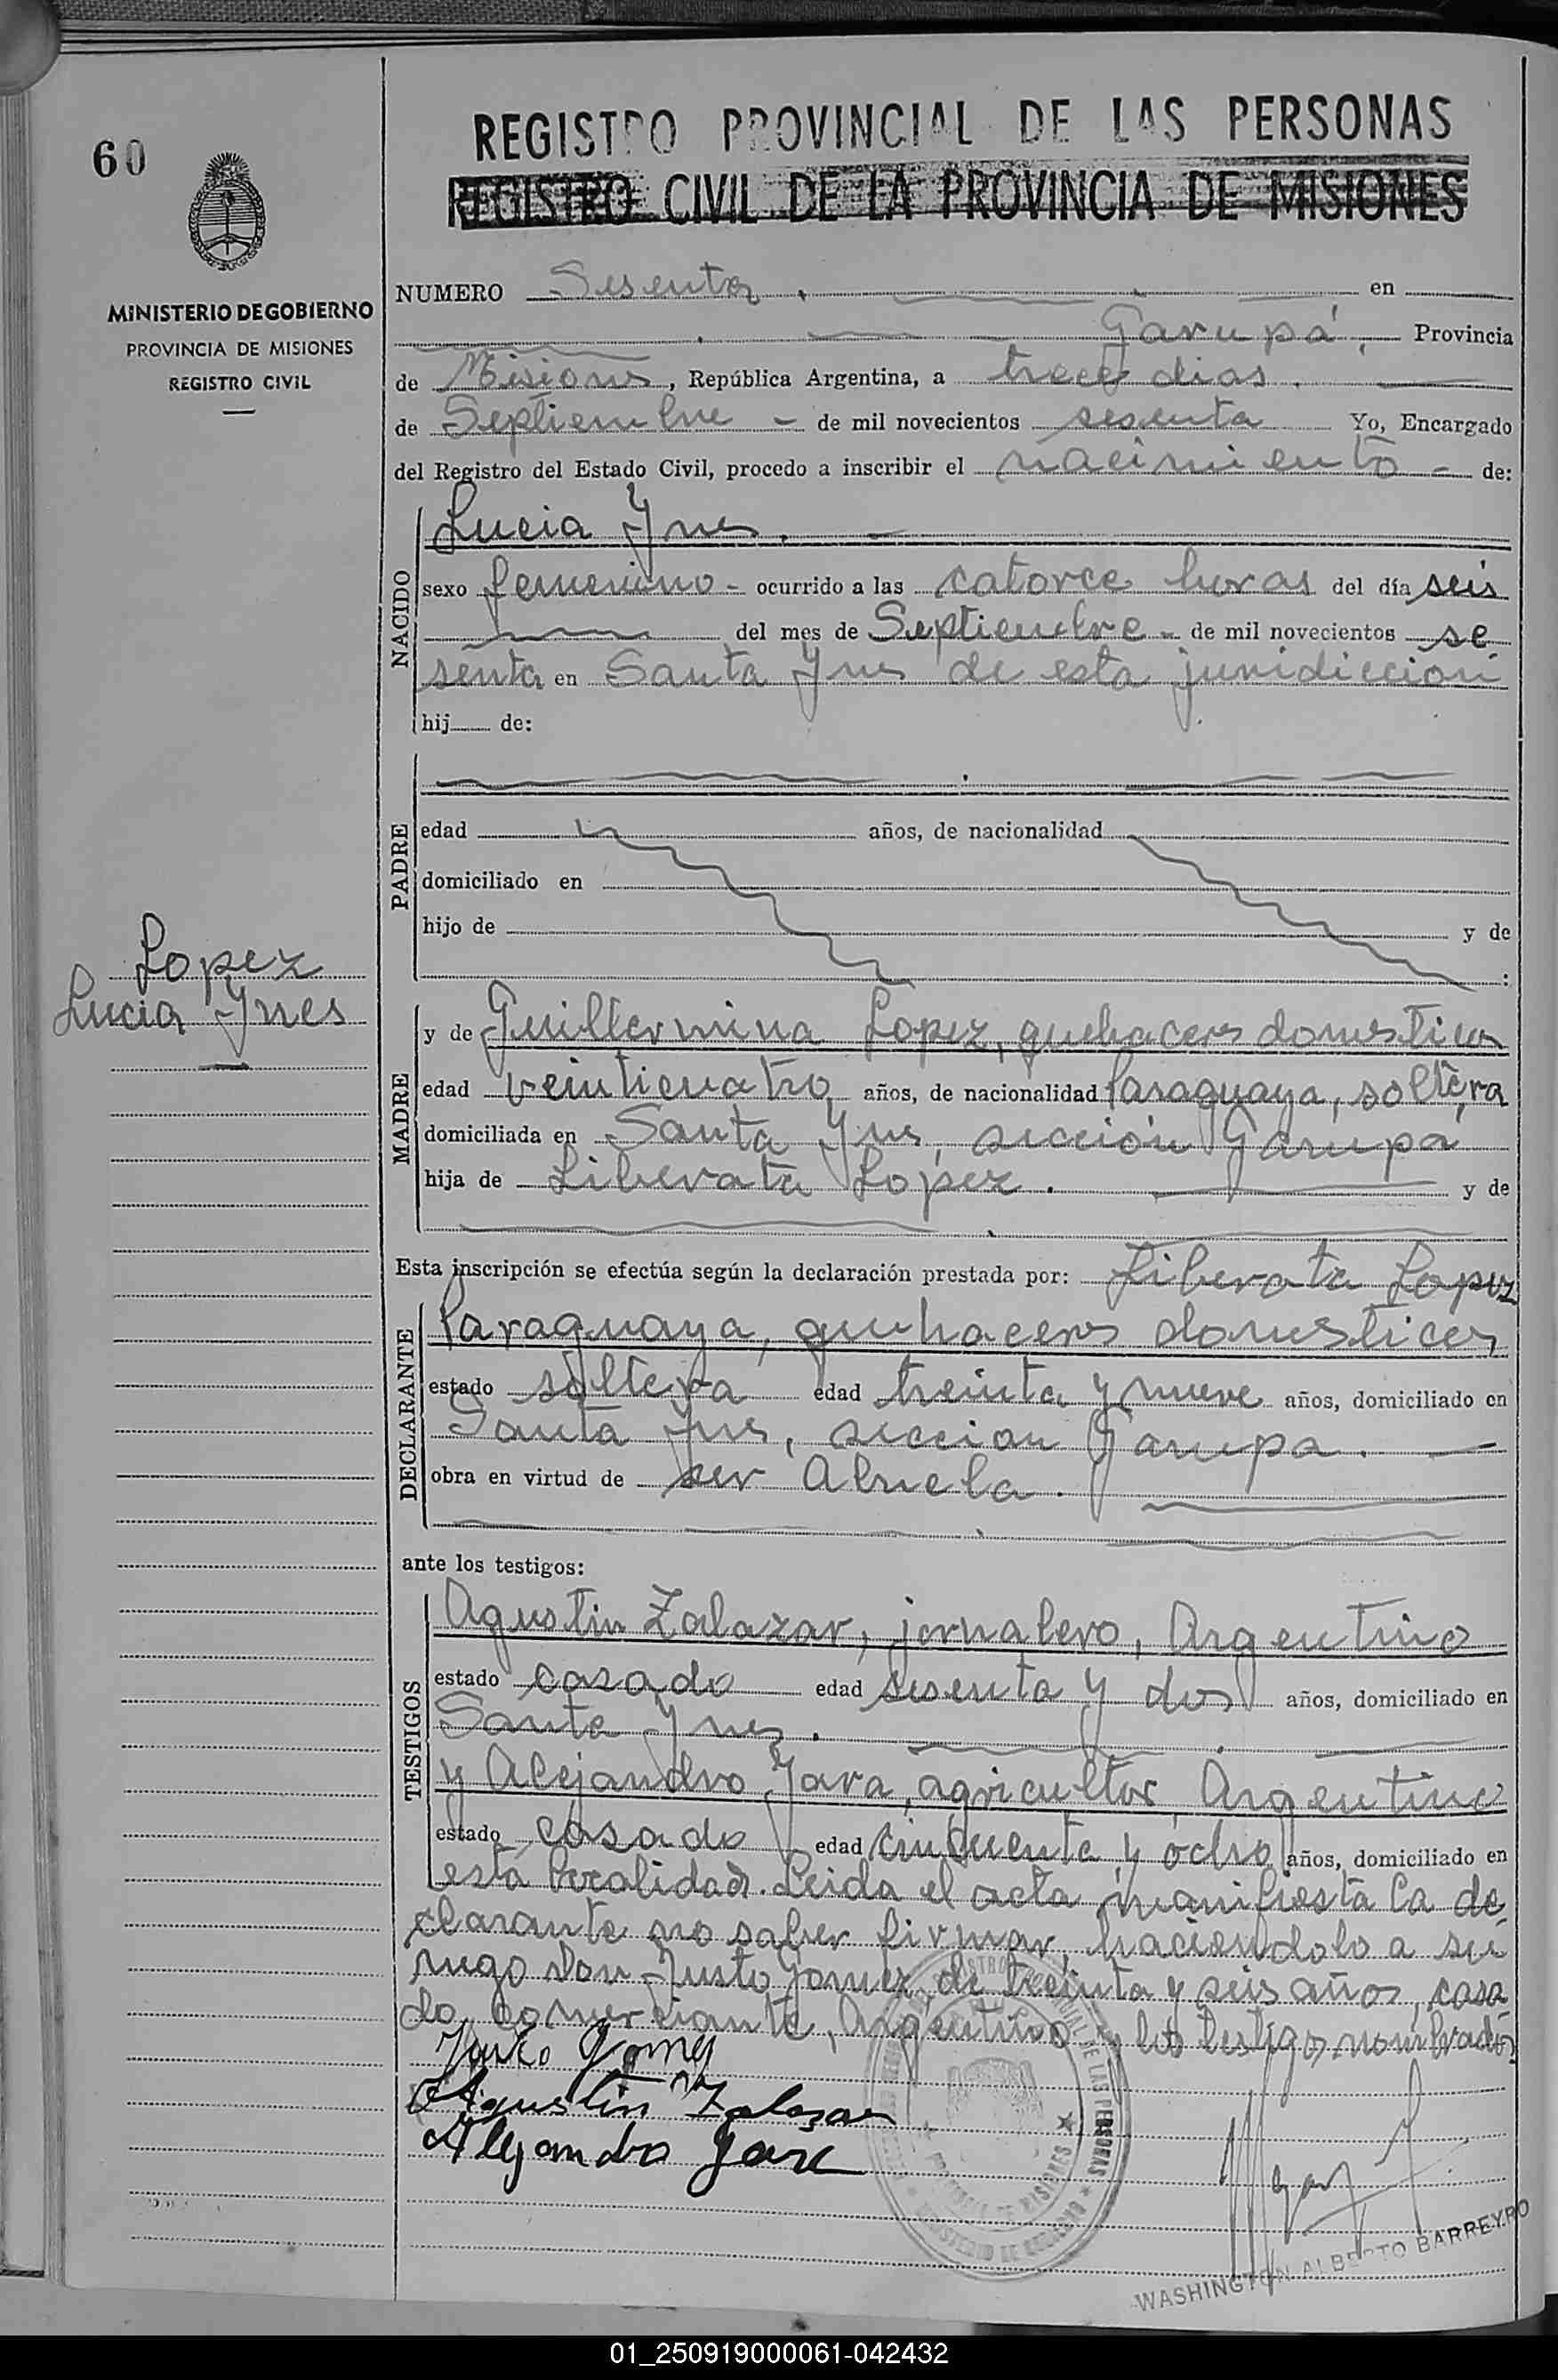 60
REGISTRO PROVINCIAL DE LAS PERSONAS
REGISTRO CIVIL DE LA PROVINCIA DE MISIONES
MINISTERIO DE GOBIERNO
PROVINCIA DE MISIONES
REGISTRO CIVIL
NUMERO Sesenta. en
Garupá, Provincia
de Misiones, República Argentina, a trece dias.
de Septiembre - de mil novecientos sesenta Yo, Encargado
del Registro del Estado Civil, procedo a inscribir el nacimiento - de:
NACIDO
Lucia Ynes. —
sexo femenino - ocurrido a las catorce horas del día seis
del mes de Septiembre - de mil novecientos se
senta en Santa Ynes de esta juridiccion
hij de:
PADRE
edad años, de nacionalidad
domiciliado en
hijo de y de
:
Lopez
Lucia Ynes
MADRE
y de Guillermina Lopez, quehaceres domesticos
edad veinticuatro años, de nacionalidad Paraguaya, soltera
domiciliada en Santa Ynes, sección Garupá
hija de Liberata Lopez. y de
Esta inscripción se efectúa según la declaración prestada por: Liberata Lopez
DECLARANTE
Paraguaya, quehaceres domesticos,
estado soltera edad treinta y nueve años, domiciliado en
Santa Ynes, seccion Garupa. —
obra en virtud de ser Abuela.
ante los testigos:
TESTIGOS
Agustin Zalazar, jornalero, Argentino
estado casado edad sesenta y dos años, domiciliado en
Santa Ynes.
y Alejandro Jara, agricultor, Argentino
estado casado edad cinquenta y ocho años, domiciliado en
esta localidad. Leida el acta manifiesta la de
clarante no saber firmar, haciendolo a su
rugo Don Justo Gomez, de treinta y seis años, casa
do, comerciante, Argentino y los testigos nombrados
Justo Gomez
Agustin Zalazar
Alejandro Jara
DE LAS PERSONAS
PROVINCIA DE MISIONES
MINISTERIO DE GOBIERNO
WASHINGTON ALBERTO BARREYRO
01_250919000061-042432